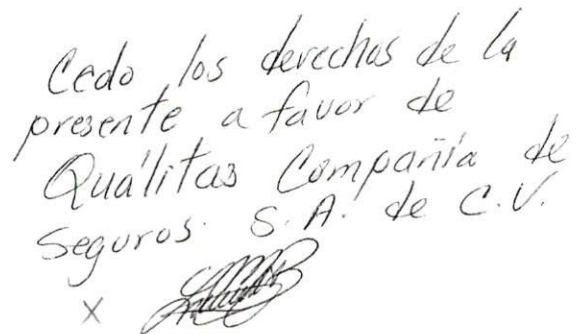 Cedo los derechos de la
presente a favor de
Quálitas Compañía de
Seguros. S.A. de C.V.
X